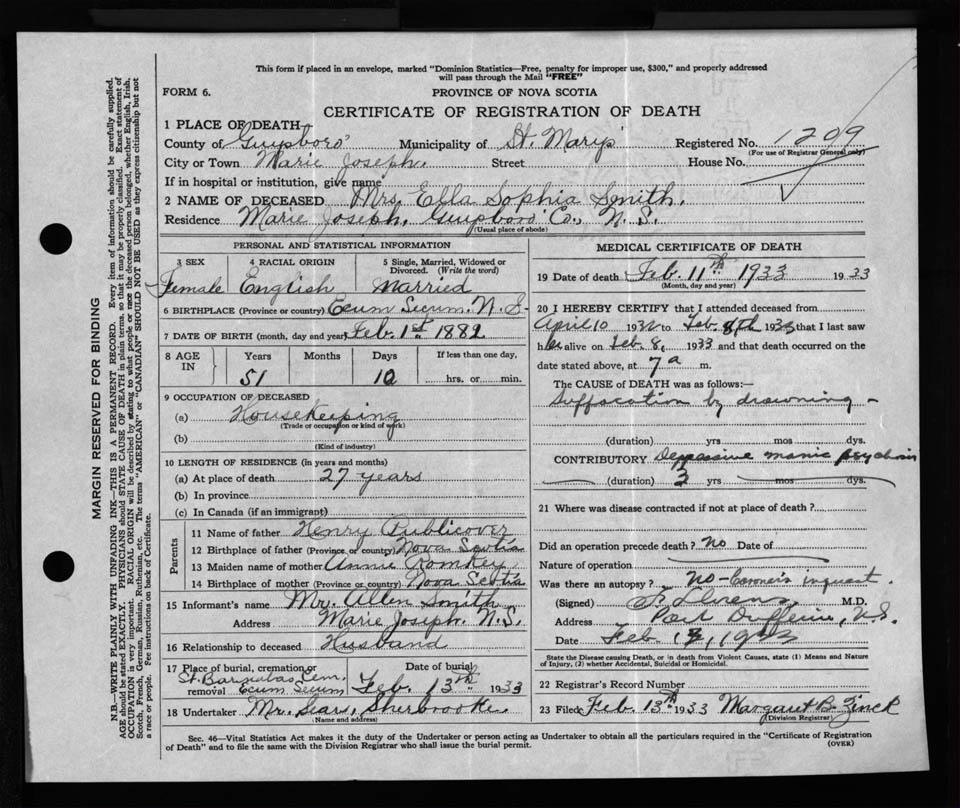 This form if placed in an envelope, marked "Dominion Statistics—Free, penalty for improper use, $300," and properly addressed
will pass through the Mail "FREE"
FORM 6.
PROVINCE OF NOVA SCOTIA
CERTIFICATE OF REGISTRATION OF DEATH
1 PLACE OF DEATH—
County of Guysboro' Municipality of St. Mary's Registered No. 1209
(For use of Registrar General only)
City or Town Marie Joseph. Street House No.
If in hospital or institution, give name
2 NAME OF DECEASED Mrs. Ella Sophia Smith.
Residence Marie Joseph, Guysboro Co., N. S.
(Usual place of abode)
PERSONAL AND STATISTICAL INFORMATION
3 SEX 4 RACIAL ORIGIN 5 Single, Married, Widowed or Divorced. (Write the word)
Female English Married
6 BIRTHPLACE (Province or country) Ecum Secum. N. S.
7 DATE OF BIRTH (month, day and year) Feb. 1st 1882
8 AGE IN Years Months Days If less than one day,
51 10 hrs. or min.
9 OCCUPATION OF DECEASED
(a) Housekeeping
(Trade or occupation or kind of work)
(b)
(Kind of industry)
10 LENGTH OF RESIDENCE (in years and months)
(a) At place of death 27 years
(b) In province
(c) In Canada (if an immigrant)
Parents
11 Name of father Henry Publicover
12 Birthplace of father (Province or country) Nova Scotia
13 Maiden name of mother Annie Romkey
14 Birthplace of mother (Province or country) Nova Scotia
15 Informant's name Mr. Allen Smith
Address Marie Joseph. N. S.
16 Relationship to deceased Husband
17 Place of burial, cremation or removal Date of burial
St. Barnabas Cem. Ecum Secum Feb. 13th 1933
18 Undertaker Mr. Sears, Sherbrooke
(Name and address)
MEDICAL CERTIFICATE OF DEATH
19 Date of death Feb. 11th 1933 1933
(Month, day and year)
20 I HEREBY CERTIFY that I attended deceased from
April 10 1932 to Feb. 8th 1933 that I last saw
her alive on Feb. 8, 1933 and that death occurred on the
date stated above, at 7 a m.
The CAUSE of DEATH was as follows:—
Suffocation by drowning -
(duration) yrs mos dys.
CONTRIBUTORY Depressive manic psychosis
(duration) 3 yrs mos dys.
21 Where was disease contracted if not at place of death?
Did an operation precede death? No Date of
Nature of operation
Was there an autopsy? no - Coroner's inquest.
(Signed) M.D.
Address Port Dufferin, N.S.
Date Feb 1933
State the Disease causing Death, or in death from Violent Causes, state (1) Means and Nature
of Injury, (2) whether Accidental, Suicidal or Homicidal.
22 Registrar's Record Number
23 Filed Feb. 13th 1933 Margaret B. Zinck
(Division Registrar)
Sec. 46—Vital Statistics Act makes it the duty of the Undertaker or person acting as Undertaker to obtain all the particulars required in the "Certificate of Registration
of Death" and to file the same with the Division Registrar who shall issue the burial permit.
(OVER)
MARGIN RESERVED FOR BINDING
N.B.—WRITE PLAINLY WITH UNFADING INK—THIS IS A PERMANENT RECORD. Every item of information should be carefully supplied.
AGE should be stated EXACTLY. PHYSICIANS should STATE CAUSE OF DEATH in plain terms, so that it may be properly classified. Exact statement of
OCCUPATION is very important. RACIAL ORIGIN will be described by stating to what people or race the deceased person belonged, whether English, Irish,
Scotch, French, German, Russian, Ruthenian, etc. The terms "AMERICAN" or "CANADIAN" SHOULD NOT BE USED as they express citizenship but not
a race or people. Fee instructions on back of Certificate.